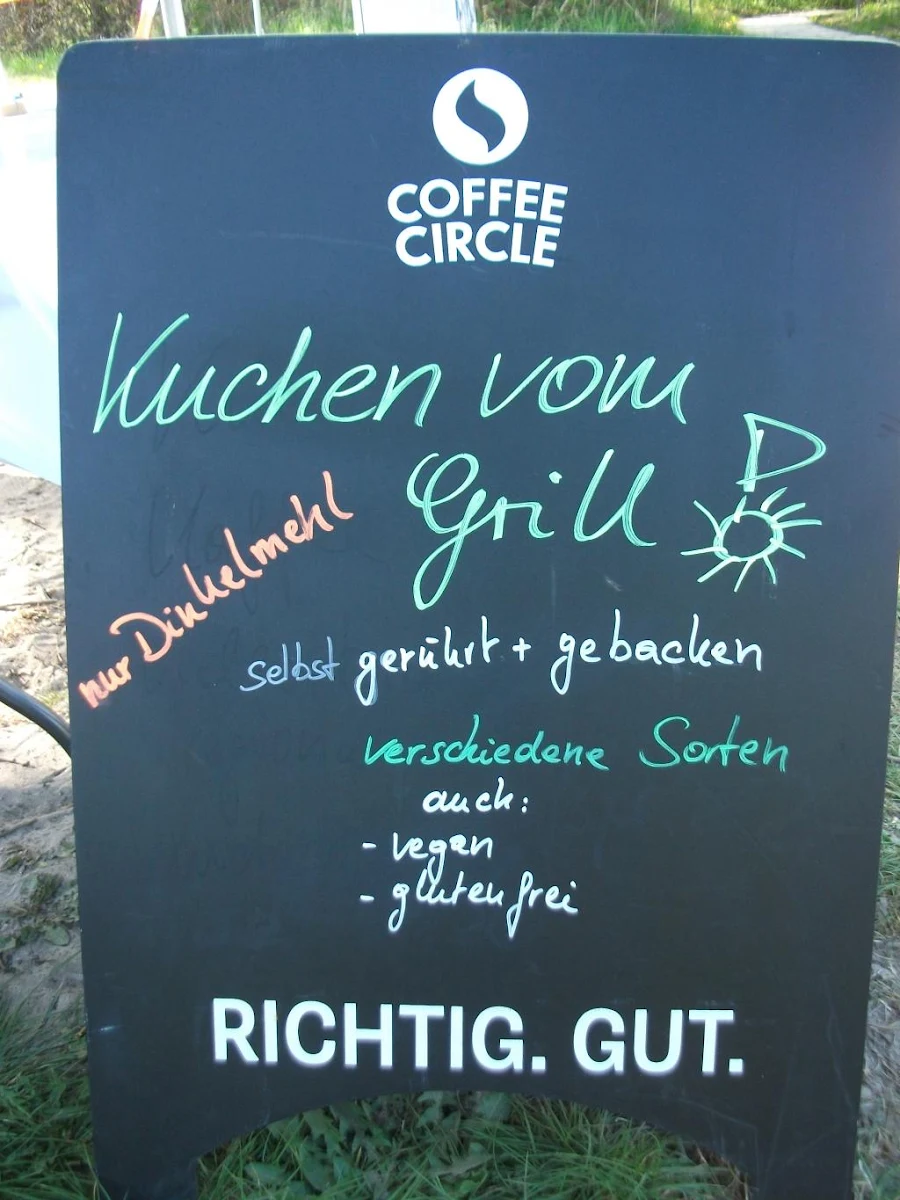 COFFEE
CIRCLE
Kuchen vom
Grill
nur Dinkelmehl
selbst gerührt + gebacken
verschiedene Sorten
auch:
- vegan
- glutenfrei
RICHTIG. GUT.